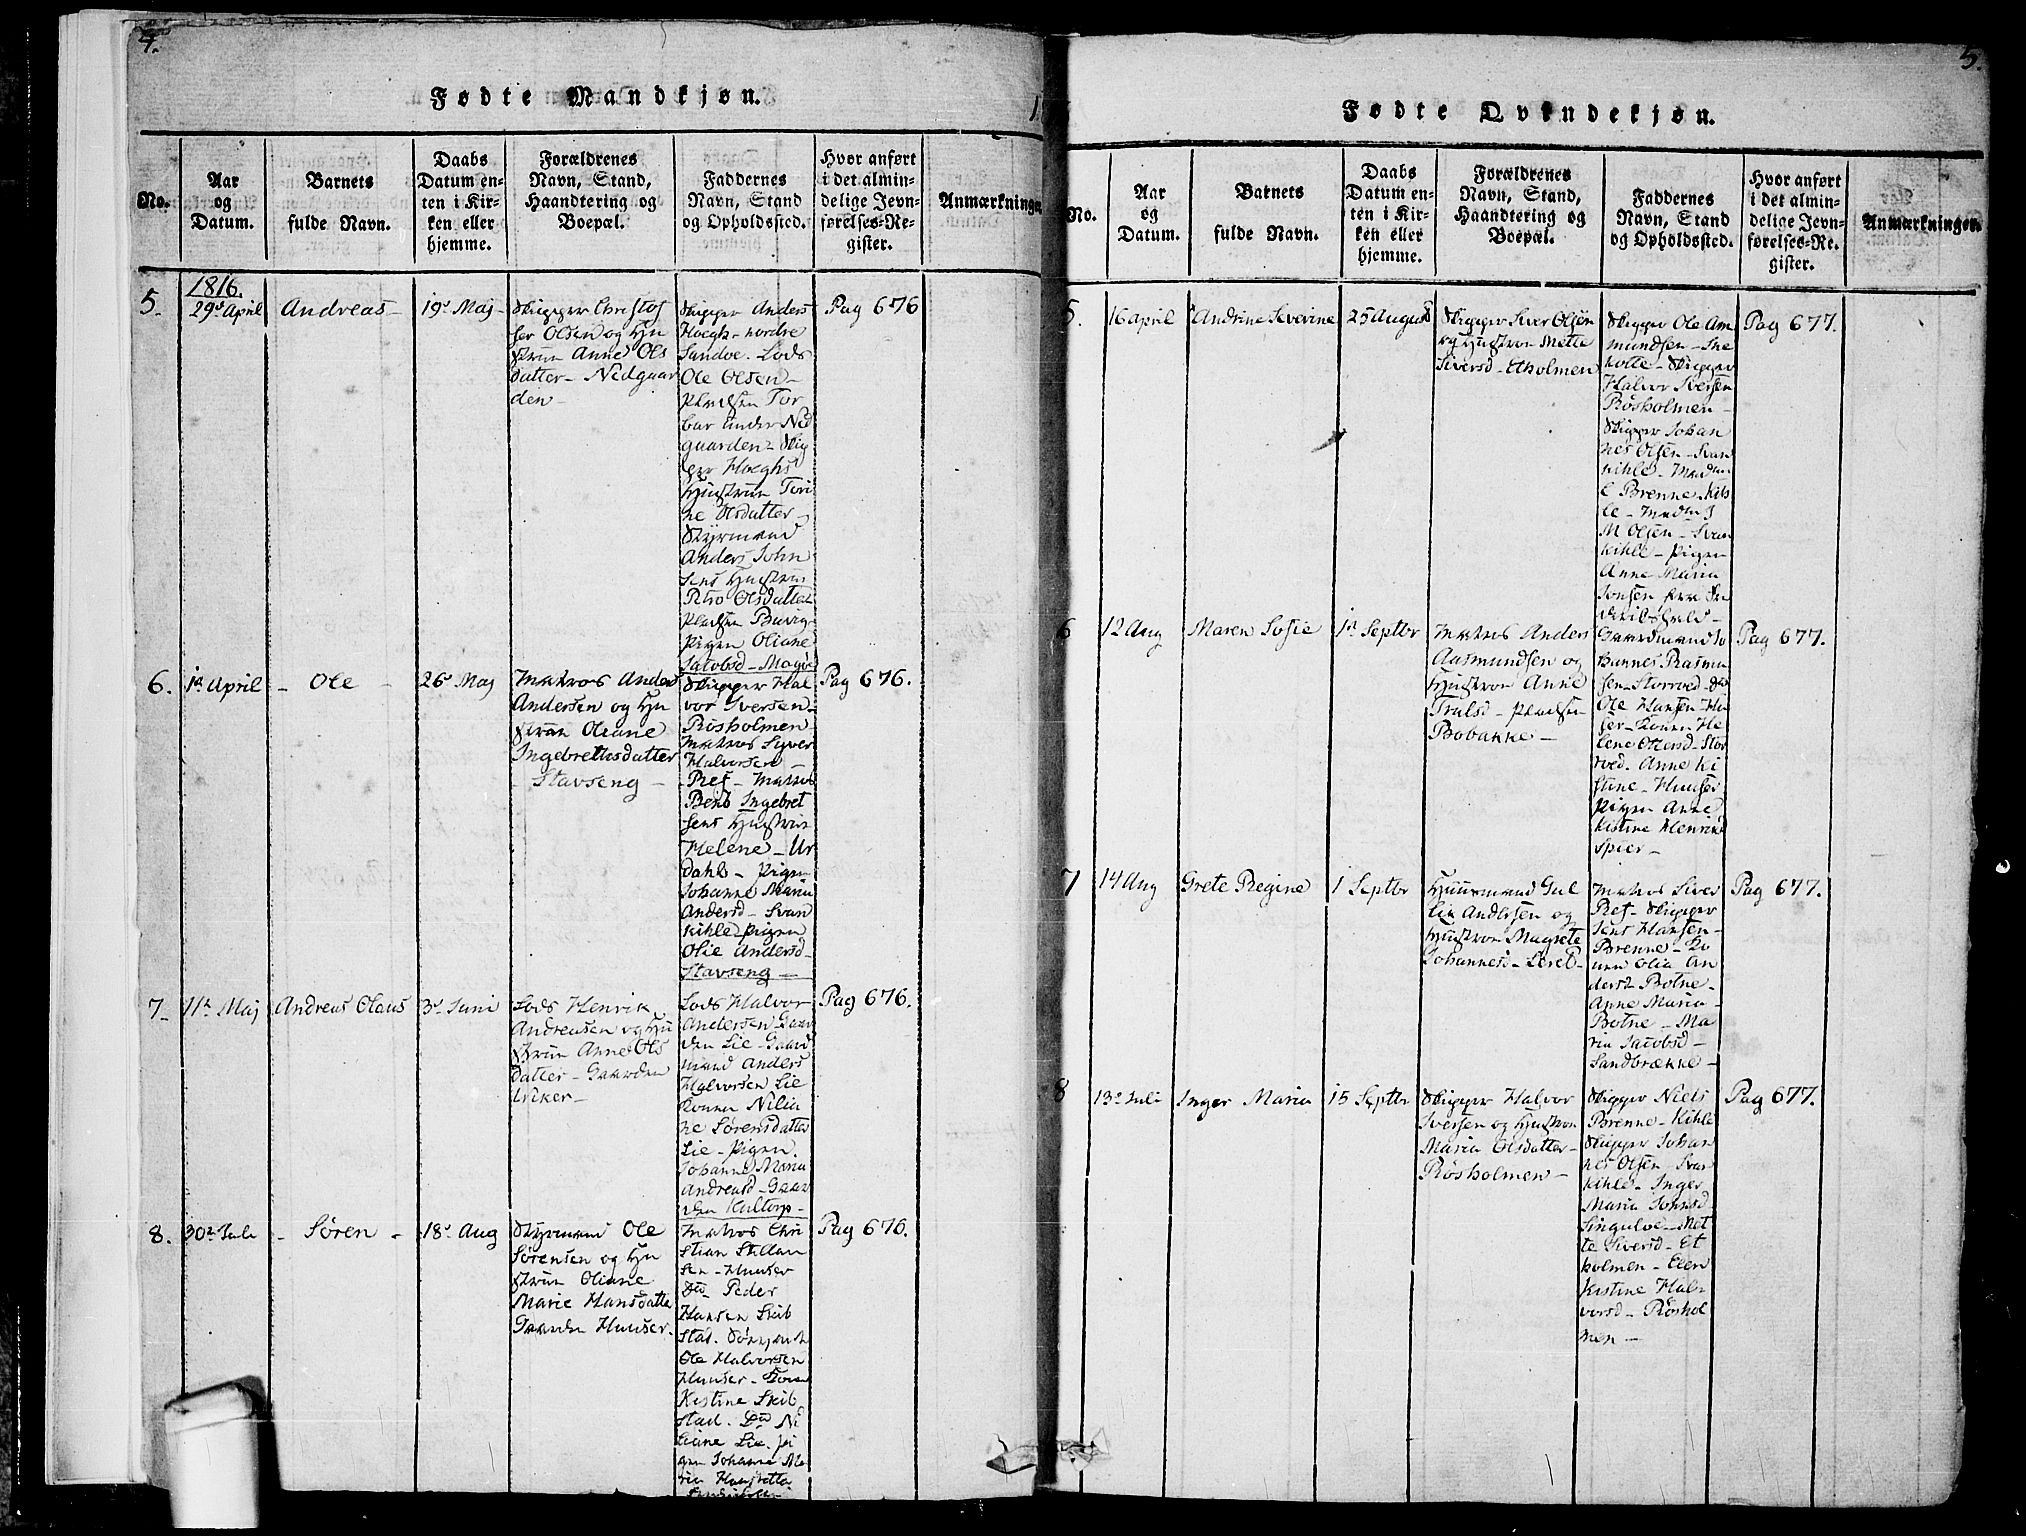 4.
Fødte Mandkjøn.
No.
Aar
og
Datum.
Barnets
fulde Navn.
Daabs
Datum en-
ten i Kir-
ken eller
hjemme.
Forældrenes
Navn, Stand,
Haandtering og
Boepæl.
Faddernes
Navn, Stand
og Opholdssted.
Hvor anført
i det almin-
delige Jevn-
førelses-Re-
gister.
Anmærkninger
1816.
5.
29de April
Andreas
19de Maj
Skipper Christof
fer Olsen og Hu
strue Anne Ols
datter - Nedgaar
den -
Skipper Anders
Hoegh - nordre
Sandøe. Lods
Ole Olsen -
Pladsen Tor
bar under Ned
guarden - Skip
per Hoeghs
Hustrue Tori
ne Olsdatter -
Styrmand
Anders John
sens Hustrue
Pladsen Buvig -
Pigen Oliane
Jacobsd - Magøe
Pag 676
6.
1de April
- Ole -
26de Maj
Matros Anders
Andersen og Hu
strue Oliane
Ingebrethsdatter
- Stavseng -
Skipper Hal
vor Iversen -
Røsholmen
Matros Syver
Halvorsen -
Ref - Matros
Bent Ingebret
sens Hustrue
Helene - Ur
dahl - Pigen
Johanne Maria
Andersd - Svan
kihle - Pigen
Olie Andersd -
Stavseng -
Pag 676.
7.
11te Maj
Andreas Olaus
3de Juni
Lods Henrik
Andreasen og Hu
strue Anne Ols
datter - Gaarden
Lods Halvor
Andersen - Gaar
den Lie - Gaard
mand Anders
Halvorsen Lie
Konen Nilia
ne Sørensdatter
Lie - Pigen
Johanne Maria
Andreasd - Gaar
den Kultorp -
Pag 676.
8.
30te Juli
- Søren -
18de Aug
Styrmand Ole
Sørensen og Hu
strue Oliane
Marie Hansdatter
Gaarden Hunser.
Matros Chri
stian Stillau
sen - Hunser
Do Peder
Hansen Skib
stad.
Ole Halvorsen
Hunser - Konen
Kistine Skib
stad. Do Ni
liane Lie. Pi
gen Johanne Ma
ria Hansdatter
Pag 676.
5.
Fødte Qvindekjøn.
No.
Aar
og
Datum.
Barnets
fulde Navn.
Daabs
Datum en-
ten i Kir-
ken eller
hjemme.
Forældrenes
Navn, Stand,
Haandtering og
Boepæl.
Faddernes
Navn, Stand
og Opholdssted.
Hvor anført
i det almin-
delige Jevn-
førelses-Re-
gister.
Anmærkninger.
5.
16 April
Andrine Severine
25 August
Skipper Siver Olsen
og Hustroe Mette
Siversd - Etholmen
Skipper Ole Am
mundsen - Sne
kotte - Skipper
Halvor Iversen
Røsholmen -
Skipper Johan
nes Olsen - Svan
kihle - Madm
E Brenne Kih
le - Madm
M Olsen - Svan
kihle - Pigen
Anne Maria
Jonsen
Pag 677.
6
12 Aug
Maren Sofie
1de Septbr
Matros Anders
Aasmundsen og
Hustroe Anne
Trulsd - Pladsen
Bobakke -
Gaardmand Jo
hannes Rasmu
sen - Storrød - Do
Ole Hansen - Hu
ser - Konen He
lene Olsersd - Stor
røed. Anne Ki
stine - Hunser
Pigen Anne
Kistine Henriksd
Spier -
Pag 677.
7
14 Aug
Grete Regine
1 Septbr
Huusmand Gul
lik Andersen og
Hustroe Magrete
Johannesd - Leret -
Matros Siver
Ref - Skipper
Jens Hansen -
Brenne - Ko
nen Olia An
dersd Botne -
Anne Maria -
Botne - Ma
ria Jacobsd -
Sandbrække -
Pag 677.
8
13de Juli
Inger Maria
15 Septbr
Skipper Halvor
Iversen og Hustroe
Maria Olsdatter -
Røsholmen -
Skipper Niels
Brenne - Kihle
Skipper Johan
nes Olsen - Svan
kihle - Inger
Maria Jonsd
Singuløe - Met
te Siversd - Et
holmen - Elen
Kistine Hal
vorsd - Røshol
men -
Pag 677.